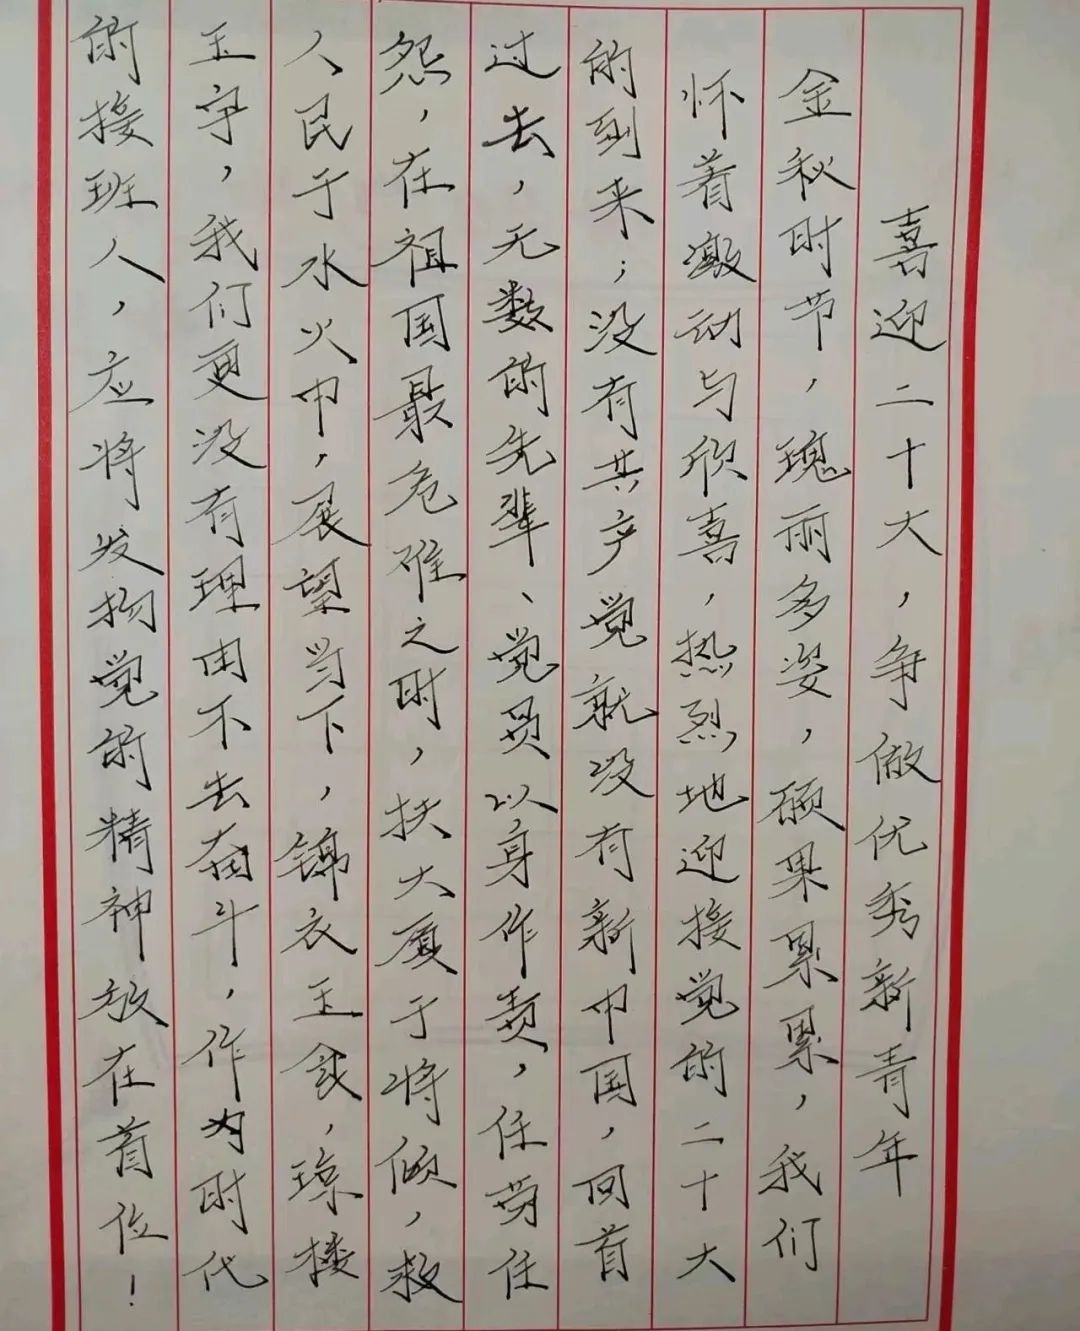 喜迎二十大，争做优秀新青年
金秋时节，瑰丽多姿，硕果累累，我们
怀着激动与欣喜，热烈地迎接党的二十大
的到来；没有共产党就没有新中国，回首
过去，无数的先辈、党员以身作责，任劳任
怨，在祖国最危难之时，扶大厦于将倾，救
人民于水火中，展望当下，锦衣玉食，琼楼
玉宇，我们更没有理由不去奋斗，作为时代
的接班人，应将发扬党的精神放在首位！